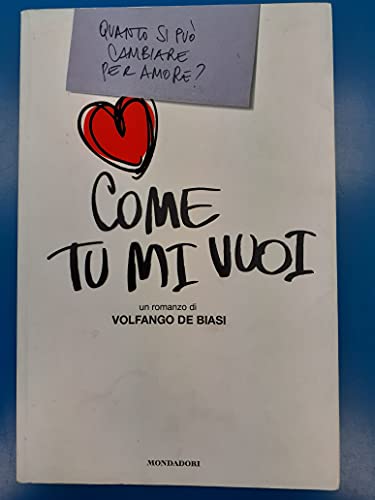 QUANTO SI PUÒ
CAMBIARE
PER AMORE?
COME
TU MI VUOI
un romanzo di
VOLFANGO DE BIASI
MONDADORI